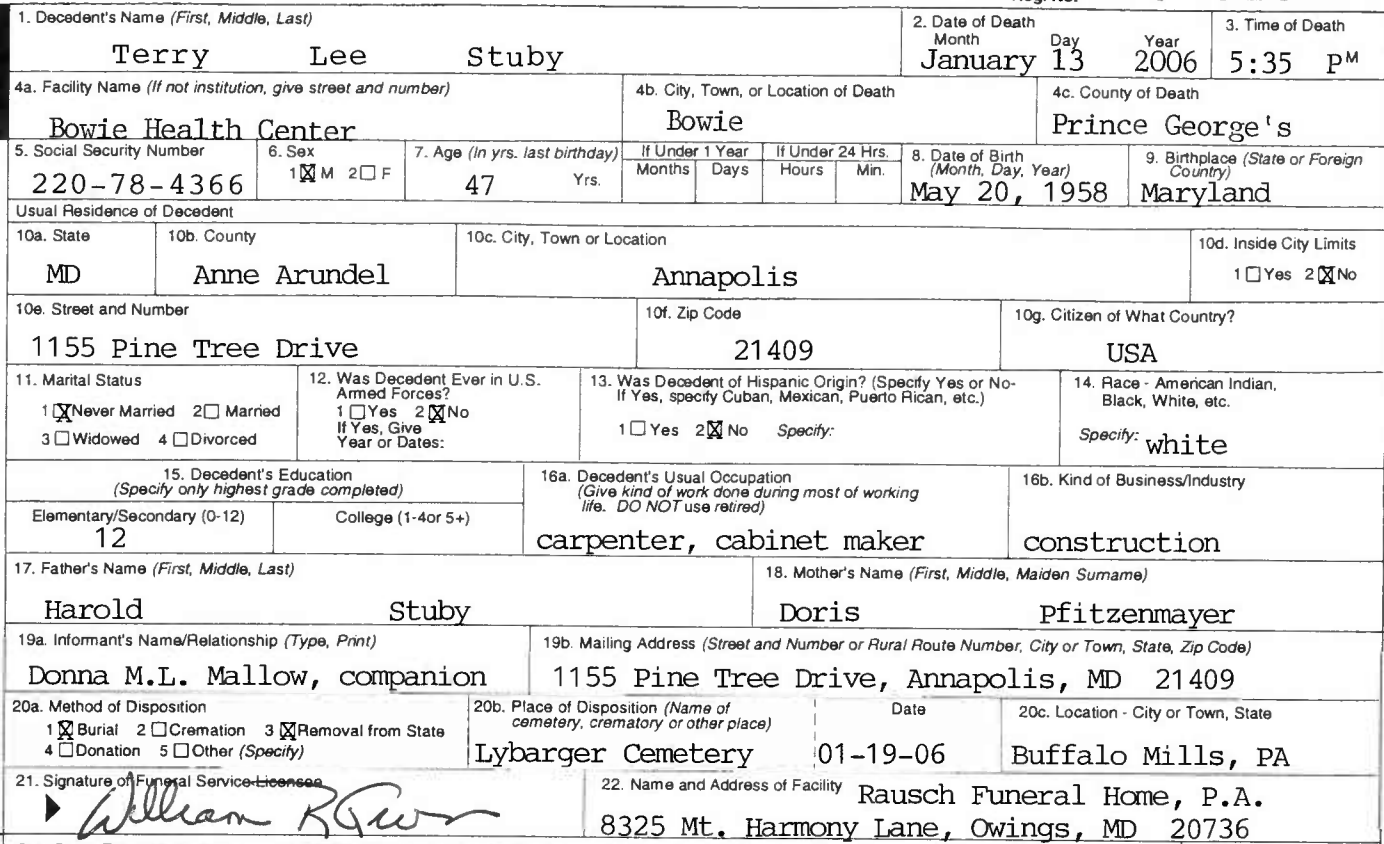 1. Decedent's Name (First, Middle, Last)
Terry Lee Stuby
2. Date of Death
Month Day Year
January 13 2006
3. Time of Death
5:35 PM
4a. Facility Name (If not institution, give street and number)
Bowie Health Center
4b. City, Town, or Location of Death
Bowie
4c. County of Death
Prince George's
5. Social Security Number
220-78-4366
6. Sex
1☒ M 2☐ F
7. Age (In yrs. last birthday)
47 Yrs.
If Under 1 Year
Months Days
If Under 24 Hrs.
Hours Min.
8. Date of Birth
(Month, Day, Year)
May 20, 1958
9. Birthplace (State or Foreign
Country)
Maryland
Usual Residence of Decedent
10a. State
MD
10b. County
Anne Arundel
10c. City, Town or Location
Annapolis
10d. Inside City Limits
1☐Yes 2☒No
10e. Street and Number
1155 Pine Tree Drive
10f. Zip Code
21409
10g. Citizen of What Country?
USA
11. Marital Status
1☒Never Married 2☐ Married
3☐Widowed 4☐Divorced
12. Was Decedent Ever in U.S.
Armed Forces?
1☐Yes 2☒No
If Yes, Give
Year or Dates:
13. Was Decedent of Hispanic Origin? (Specify Yes or No-
If Yes, specify Cuban, Mexican, Puerto Rican, etc.)
1☐Yes 2☒No Specify:
14. Race - American Indian,
Black, White, etc.
Specify: white
15. Decedent's Education
(Specify only highest grade completed)
Elementary/Secondary (0-12)
12
College (1-4or 5+)
16a. Decedent's Usual Occupation
(Give kind of work done during most of working
life. DO NOT use retired)
carpenter, cabinet maker
16b. Kind of Business/Industry
construction
17. Father's Name (First, Middle, Last)
Harold Stuby
18. Mother's Name (First, Middle, Maiden Surname)
Doris Pfitzenmayer
19a. Informant's Name/Relationship (Type, Print)
Donna M.L. Mallow, companion
19b. Mailing Address (Street and Number or Rural Route Number, City or Town, State, Zip Code)
1155 Pine Tree Drive, Annapolis, MD 21409
20a. Method of Disposition
1☒Burial 2☐Cremation 3☒Removal from State
4☐Donation 5☐Other (Specify)
20b. Place of Disposition (Name of
cemetery, crematory or other place)
Lybarger Cemetery
Date
01-19-06
20c. Location - City or Town, State
Buffalo Mills, PA
21. Signature of Funeral Service Licensee
William R
22. Name and Address of Facility Rausch Funeral Home, P.A.
8325 Mt. Harmony Lane, Owings, MD 20736